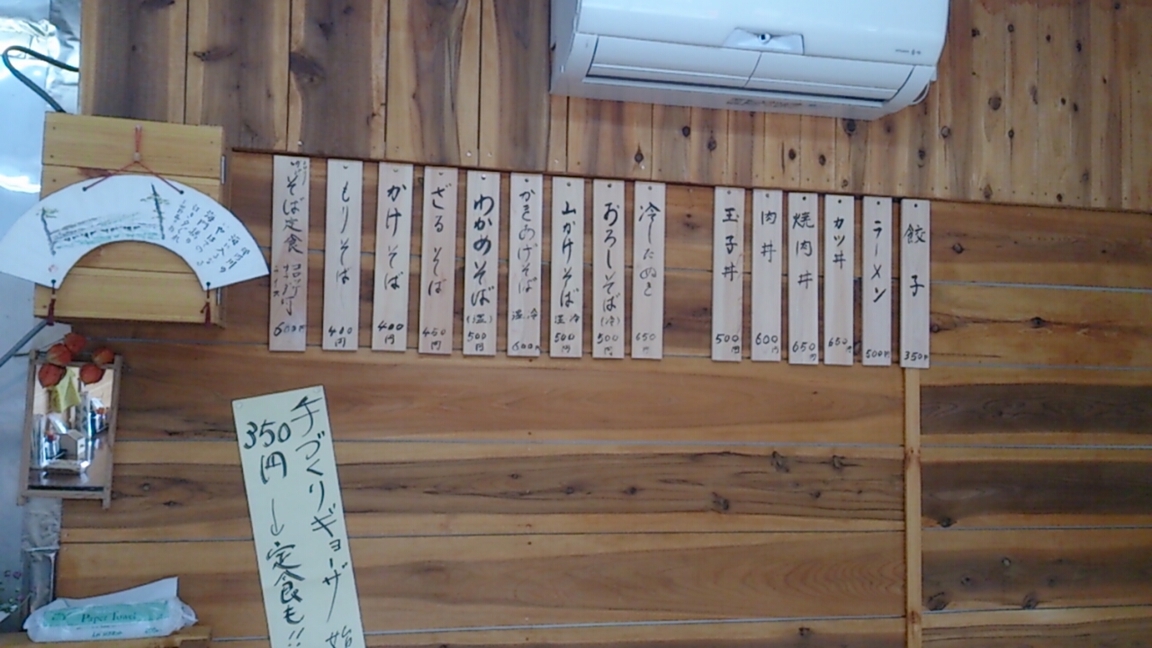 そば定食
600円
もりそば
400円
かけそば
400円
ざるそば
450円
わかめそば(温)
500円
かきあげそば 温 冷
600円
山かけそば 温 冷
500円
おろしそば(冷)
500円
冷したぬき
650円
玉子丼
500円
肉丼
600円
焼肉丼
650円
カツ丼
650円
ラーメン
500円
餃子
350円
手づくりギョーザ 始
350円
定食も!!
Paper Towel